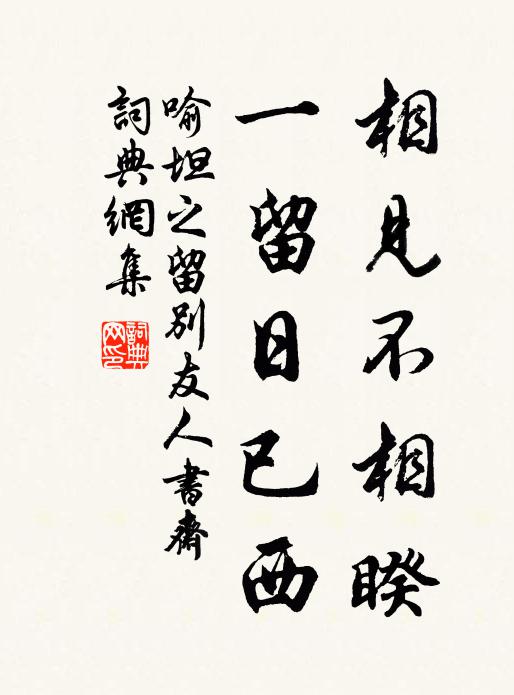 相見不相睽
一留日已西
喻坦之留別友人書齋
詞典網集
詞典網印